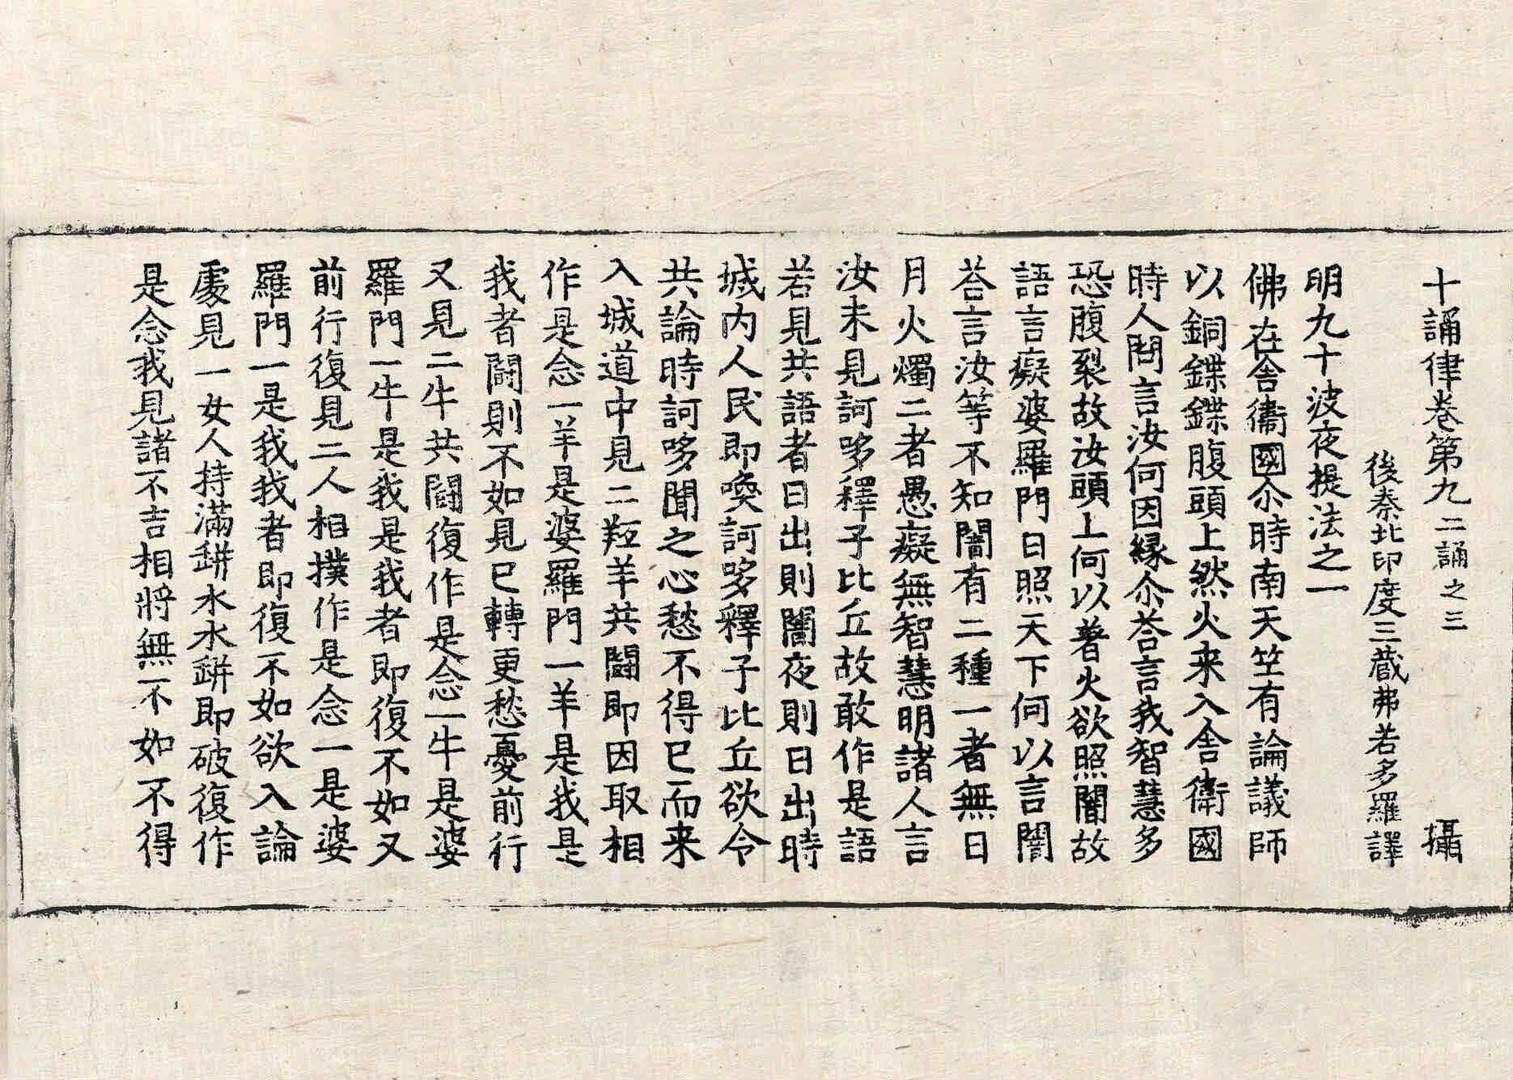 十誦律卷第九 二誦之三 攝
後秦北印度三藏弗若多羅譯
明九十波夜提法之一
佛在舎衛國尒時南天竺有論議師
以銅鍱鍱腹頭上然火来入舎衛國
時人問言汝何因縁尒荅言我智慧多
恐腹裂故汝頭上何以着火欲照闇故
語言癡婆羅門日照天下何以言闇
荅言汝等不知闇有二種一者無日
月火燭二者愚癡無智慧明諸人言
汝未見訶哆釋子比丘故敢作是語
若見共語者日出則闇夜則日出時
城内人民即喚訶哆釋子比丘欲令
共論時訶哆聞之心愁不得已而来
入城道中見二羝羊共鬪即因取相
作是念一羊是婆羅門一羊是我是
我者鬪則不如見已轉更愁憂前行
又見二牛共鬪復作是念一牛是婆
羅門一牛是我是我者即復不如又
前行復見二人相撲作是念一是婆
羅門一是我我者即復不如欲入論
處見一女人持滿缾水水缾即破復作
是念我見諸不吉相將無不如不得